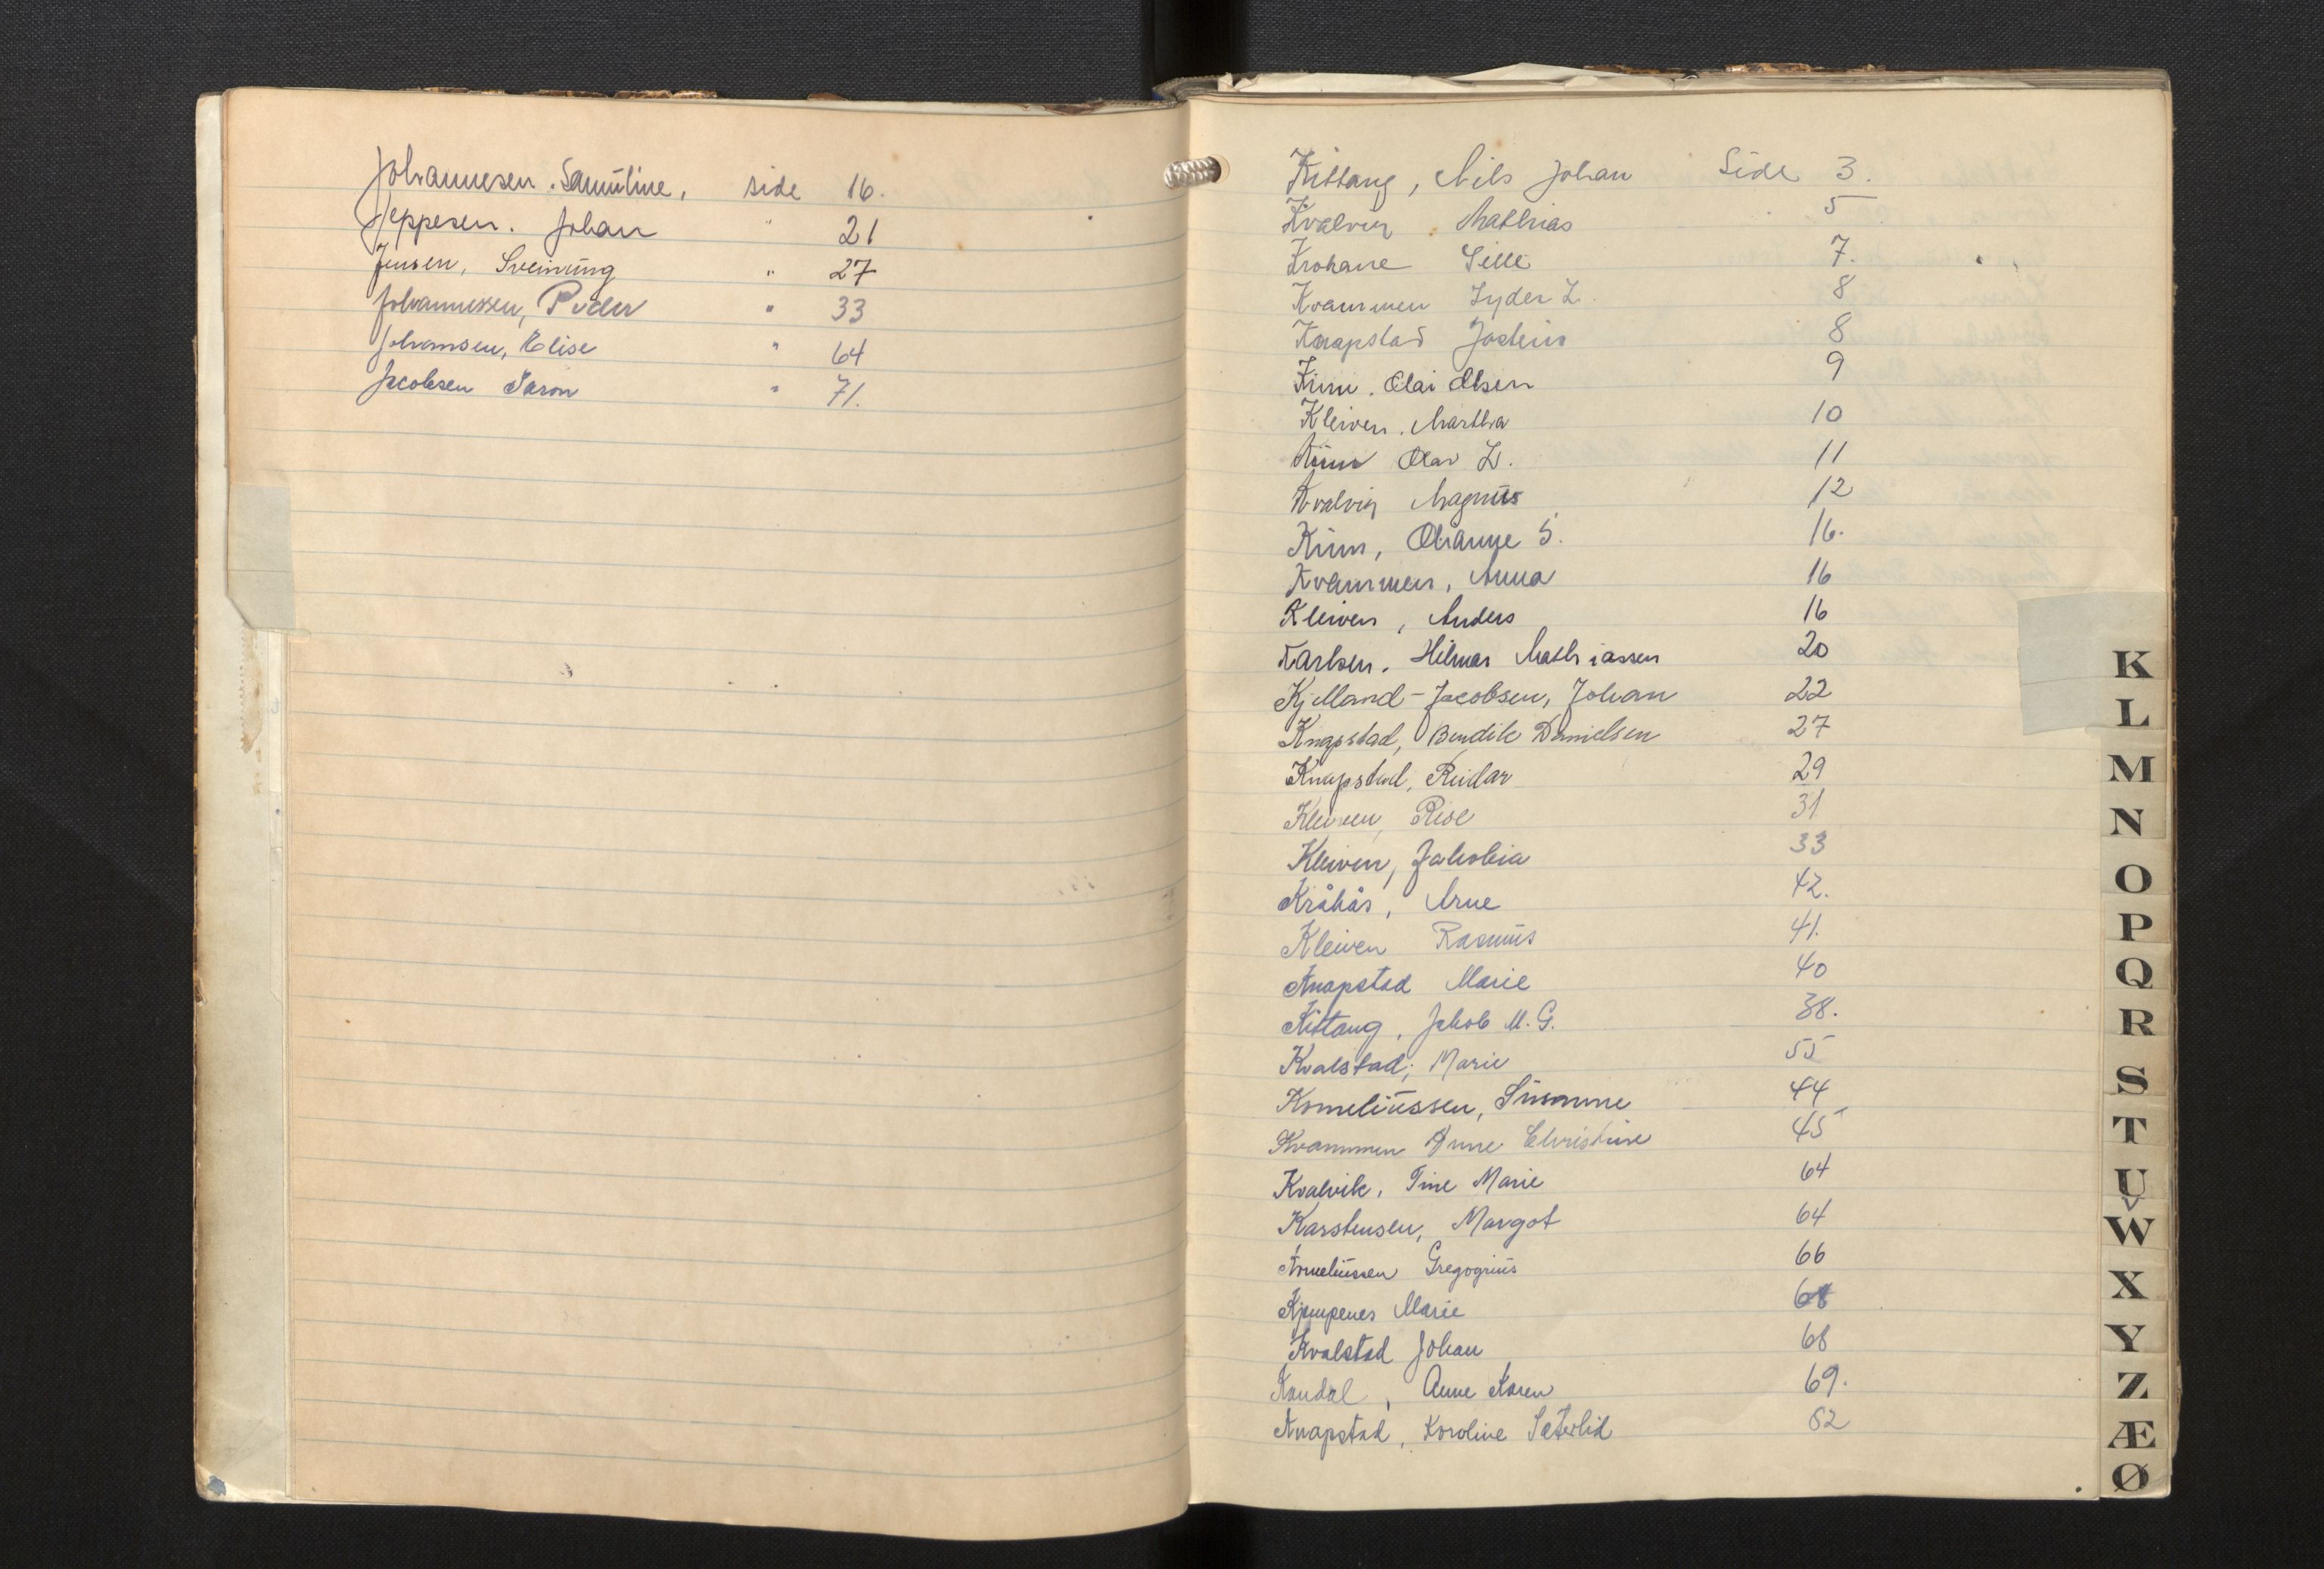 Johannesen. Samuline, side 16.
Jeppesen. Johan " 21
Jensen, Sveinung " 27
Johannessen, Peder " 33
Johansen, Elise " 64
Jacobsen Saron " 71.
Kittang, Nils Johan Side 3.
Kvalvig. Mathias 5
Krohane Sille 7.
Kvammen Lyder L. 8
Knapstad Jostein 8
Kinn. Olai Olsen 9
Kleiven. Martha 10
Kinn Olav L. 11
Kvalvig Magnus 12
Kinn, Olianne S. 16.
Kvammen, Anna 16
Kleiven, Anders 16
Karlsen. Hilmar Mathiassen 20
Kjelland-Jacobsen, Johan 22
Knapstad, Bendik Danielsen 27
Knapstad, Reidar 29
Kleiven, 31
Kleiven, Jakobia 33
Kråkås, Arne 42.
Kleiven Rasmus 41.
Knapstad Marie 40
Kittang, Jakob M. G. 38.
Kvalstad, Marie 55
Korneliussen, Susanne 44
Kvammen Anne Christine 45
Kvalvik, Tine Marie 64
Karstensen, Margot 64
Korneliussen Gregogrius 66
Kjempenes Marie 68
Kvalstad Johan 68
Kandal, Anne Karen 69.
Knapstad, Karoline Sæterlid 82
K
L
M
N
O
P
Q
R
S
T
U
V
W
X
Y
Z
Æ
Ø